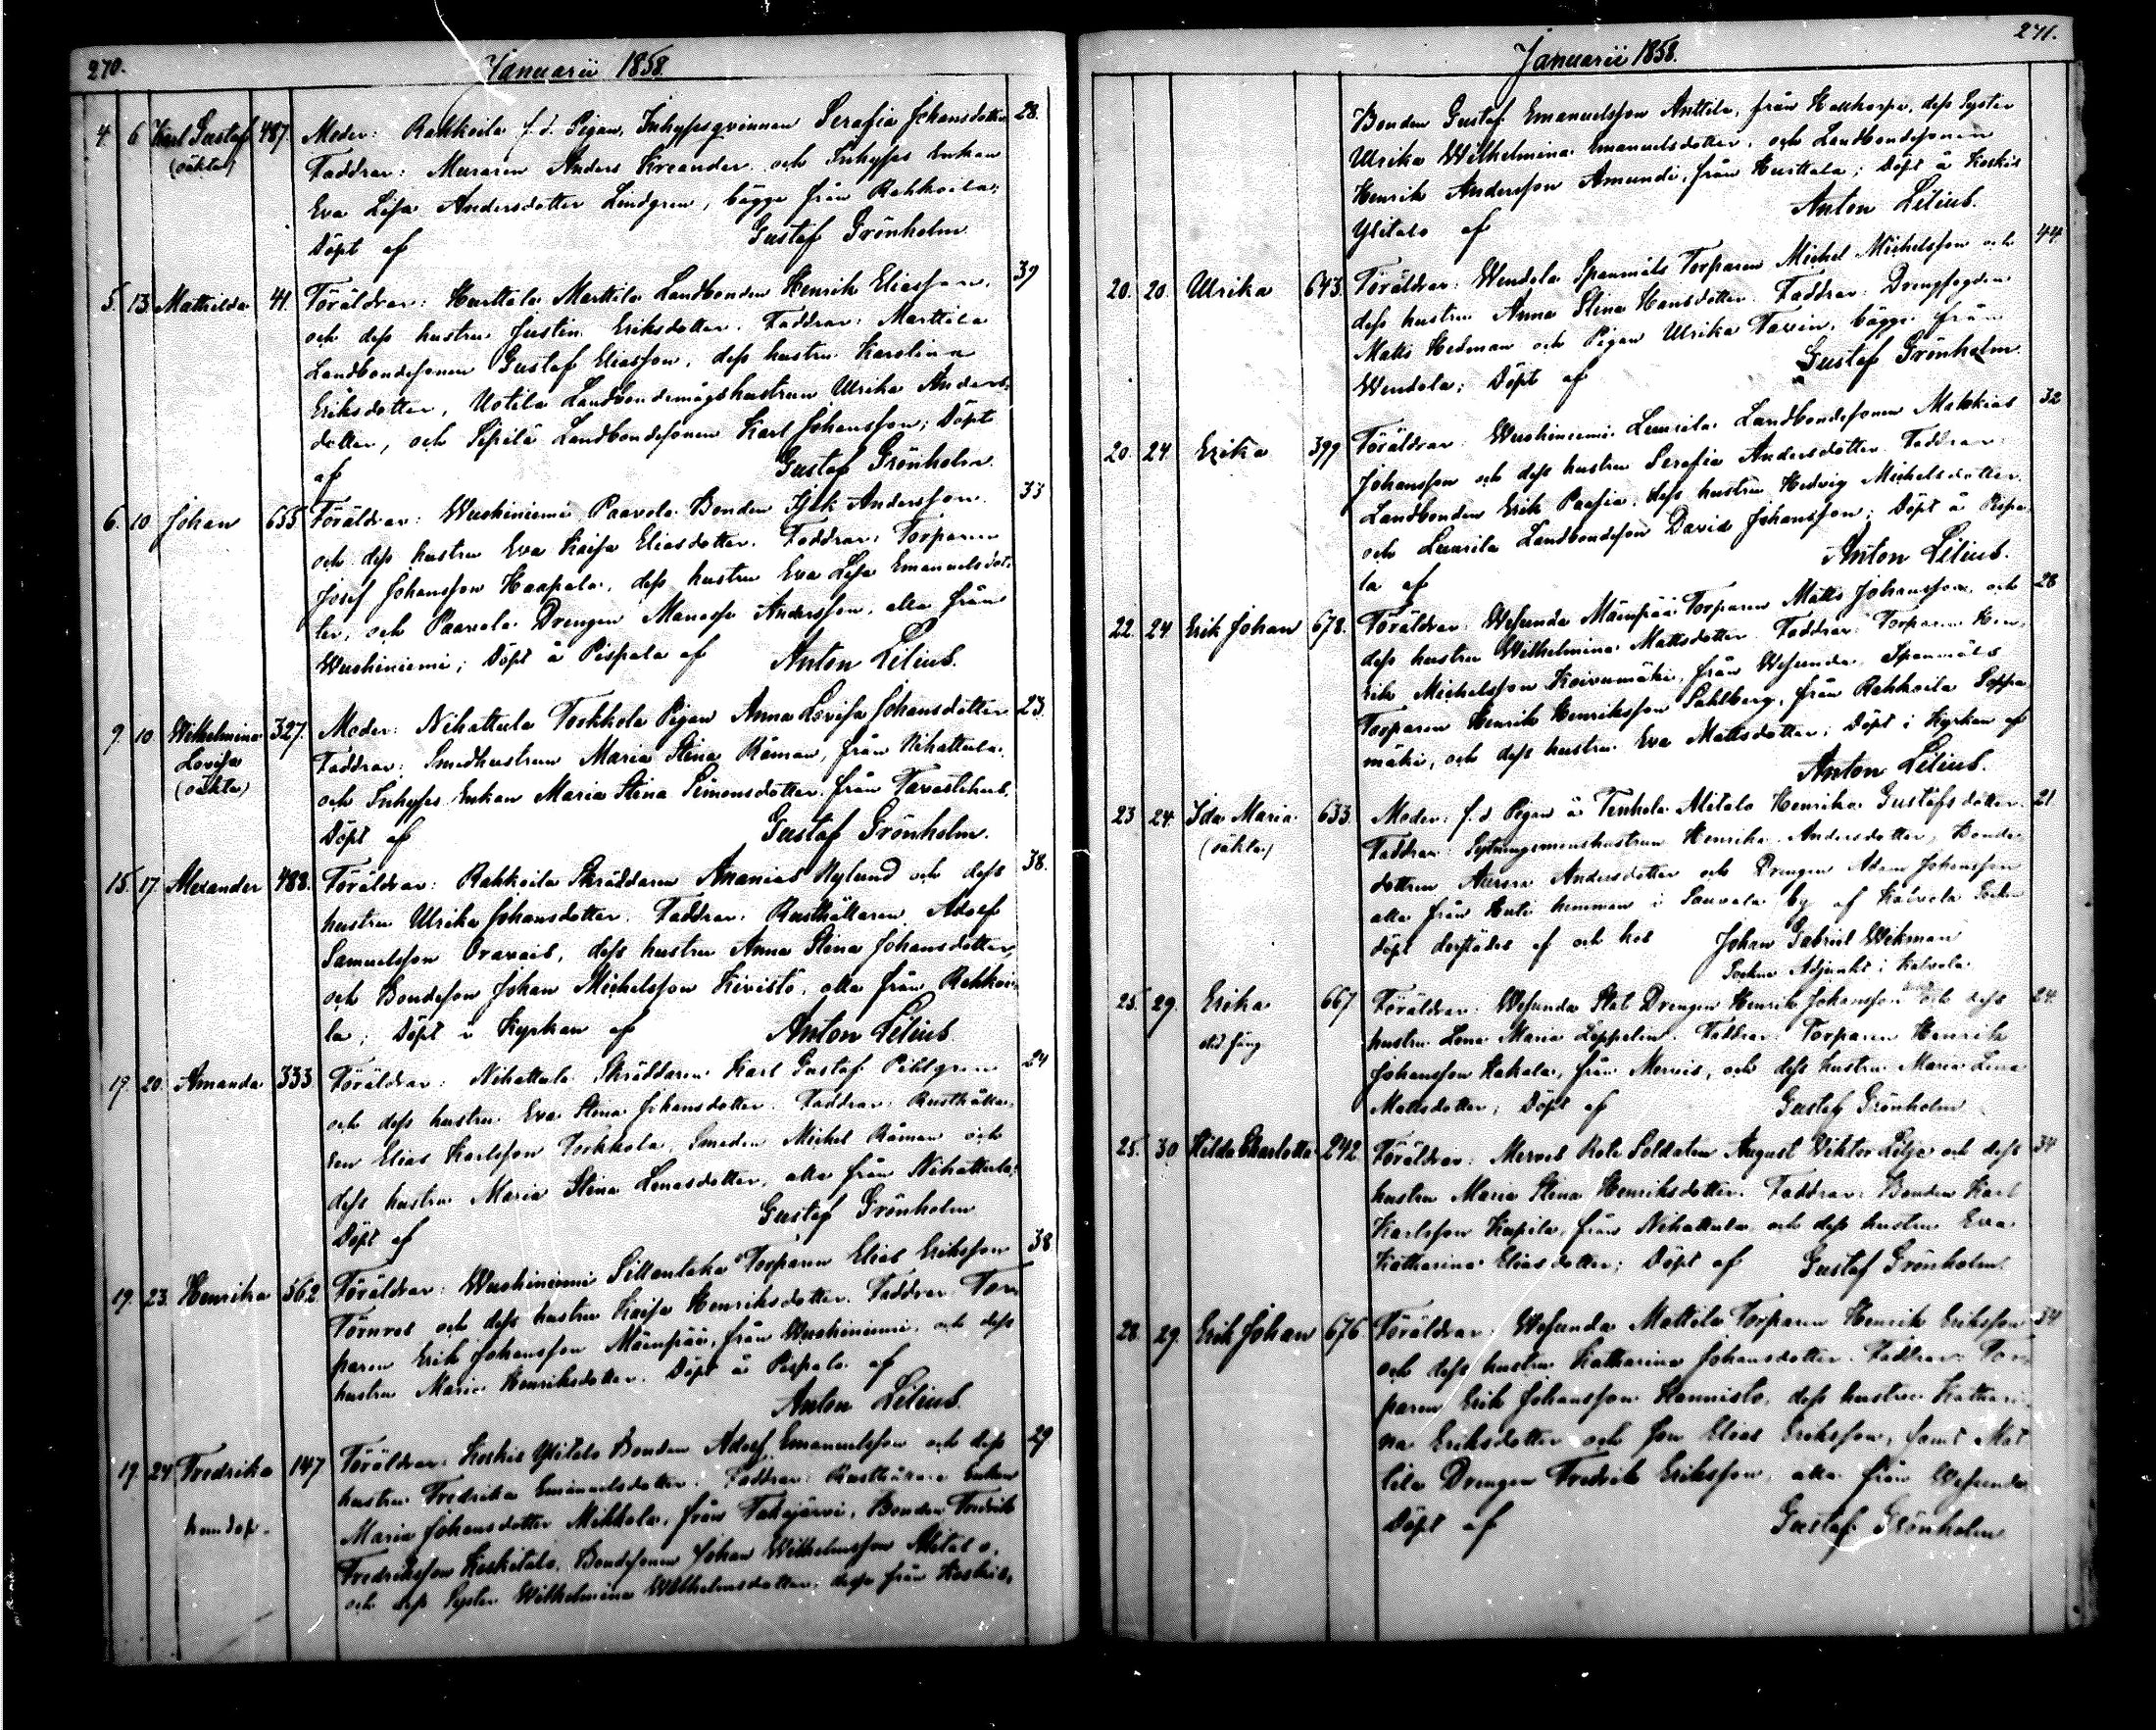 270.
Januarii 1858
4 6 Karl Gustaf 487. Moder: Rahkoila f. d. Pigan, Inhysesqvinnan Serafia Johansdotter 28.
(oäkta) Faddrar: Muraren Anders Kreander och Inhyses Enkan
Eva Lisa Andersdotter Lindgren, bägge från Rahkoila;
Döpt af Gustaf Grönholm
5. 13. Mathilda 41. Föräldrar: Hurttala Marttila Landbonden Henrik Eliasson, 39
och dess hustru Justina Eriksdotter. Faddrar: Marttila
Landbondesonen Gustaf Eliasson, dess hustru Karolina
Eriksdotter, Uotila Landbondemågshustrun Ulrika Anders-
dotter, och Sipilä Landbondesonen Karl Johansson; Döpt
af Gustaf Grönholm.
6. 10 Johan 655 Föräldrar: Wuohiniemi Paavola Bonden Isak Andersson 33
och dess hustru Eva Kaisa Eliasdotter. Faddrar: Torparen
Josef Johansson Haapala, dess hustru Eva Lisa Emanuelsdot-
ter, och Paavola Drengen Manasse Andersson, alla från
Wuohiniemi; Döpt å Pispala af Anton Lilius.
9. 10 Wilhelmina 327. Moder: Nihattula Torkkola Pigan Anna Lovisa Johansdotter 23.
Lovisa Faddrar: Smedhustrun Maria Stina Råman, från Nihattula
(oäkta) och Inhyses Enkan Maria Stina Simonsdotter från Tavastehus.
Döpt af Gustaf Grönholm.
15. 17. Alexander 488. Föräldrar: Rahkoila Skräddaren Ananias Nylund och dess 38.
hustru Ulrika Johansdotter. Faddrar: Rusthållaren Adolf
Samuelsson Oravais, dess hustru Anna Stina Johansdotter,
och Bondeson Johan Michelsson Kivistö, alla från Rahkoi-
la; Döpt i Kyrkan af Anton Lilius.
19. 20. Amanda 333 Föräldrar: Nihattula Skräddaren Karl Gustaf Pihlgren 24
och dess hustru Eva Stina Johansdotter. Faddrar: Rusthålla-
ren Elias Karlsson Torkkola, Smeden Michel Råman och
dess hustru Maria Stina Lenasdotter, alla från Nihattula;
Döpt af Gustaf Grönholm
19. 23. Henrika 562. Föräldrar: Wuohiniemi Sillantaka Torparen Elias Eriksson 38
Törnros och dess hustru Kaisa Henriksdotter. Faddrar: Tor-
paren Erik Johansson Mäenpää, från Wuohiniemi, och dess
hustru Maria Henriksdotter. Döpt å Pispala af
Anton Lilius.
19. 24 Fredrika 147 Föräldrar: Koskis Ylitalo Bonden Adolf Emanuelsson och dess 29
hustru Fredrika Emanuelsdotter. Faddrar: Rusthållare Enkan
Maria Johansdotter Mikkola, från Takajärvi, Bonden Fredrik
Fredriksson Koskitalo, Bondesonen Johan Wilhelmsson Alitalo,
och dess Syster Wilhelmina Wilhelmsdotter, desse från Koskis,
271.
Januarii 1858.
Bonden Gustaf Emanuelsson Anttila, från Katkorpi, dess Syster
Ulrika Wilhelmina Emanuelsdotter, och Landbondesonen
Henrik Andersson Amundi, från Hurttala; Döpt å Koskis
Ylitalo af Anton Lilius.
20. 20. Ulrika 643. Föräldrar: Wendela Spanmåls Torparen Michel Michelsson och 44
dess hustru Anna Stina Hansdotter. Faddrar: Drengfogden
Matts Hedman och Pigan Ulrika Tavin, bägge från
Wendela; Döpt af Gustaf Grönholm.
20. 24. Erika 399 Föräldrar: Wuohiniemi Laurila Landbondesonen Mathias 32
Johansson och dess hustru Serafia Andersdotter. Faddrar:
Landbonden Erik Paasia, dess hustru Hedvig Michelsdotter
och Laurila Landbondeson David Johansson; Döpt å Pispa-
la af Anton Lilius.
22. 24 Erik Johan 678. Föräldrar: Wesunda Mäenpää Torparen Matts Johansson och 28
dess hustru Wilhelmina Mattsdotter. Faddrar: Torparen Hen-
rik Michelsson Koivumäki, från Wesunda, Spanmåls
Torparen Henrik Henriksson Sahlberg, från Rahkoila Seppä
mäki, och dess hustru Eva Mattsdotter; Döpt i Kyrkan af
Anton Lilius.
23 24. Ida Maria 633. Moder: f. d. Pigan å Tenhola Alitalo Henrika Gustafsdotter 21
(oäkta) Faddrar: Sytningsmanshustrun Henrika Andersdotter, Bonde-
dottren Aurora Andersdotter och Drengen Adam Johansson
alla från Huti hemman i Sauvala by af Kalvola Socken
döpt derstädes af och hos Johan Gabriel Wikman
Sockne Adjunkt i Kalvola
25. 29. Erika 667 Föräldrar: Wesunda Stat Drengen Henrik Johansson och dess 24
hustru Lena Maria Leppelin. Faddrar: Torparen Henrik
Johansson Hakala, från Mervis, och dess hustru Maria Lena
Mattsdotter; Döpt af Gustaf Grönholm
25. 30 Hilda Charlotta 242 Föräldrar: Mervis Rote Soldaten August Viktor Lilja och dess 34
hustru Maria Stina Henriksdotter. Faddrar: Bonden Karl
Karlsson Kupila, från Nihattula och dess hustru Eva
Katharina Eliasdotter; Döpt af Gustaf Grönholm
28. 29. Erik Johan 676 Föräldrar: Wesunda Mattila Torparen Henrik Eriksson 34
och dess hustru Katharina Johansdotter. Faddrar: Tor-
paren Erik Johansson Hannisto, dess hustru Kathari-
na Eriksdotter och son Elias Eriksson, samt Mat
tila Drengen Fredrik Eriksson, alla från Wesunda
Döpt af Gustaf Grönholm